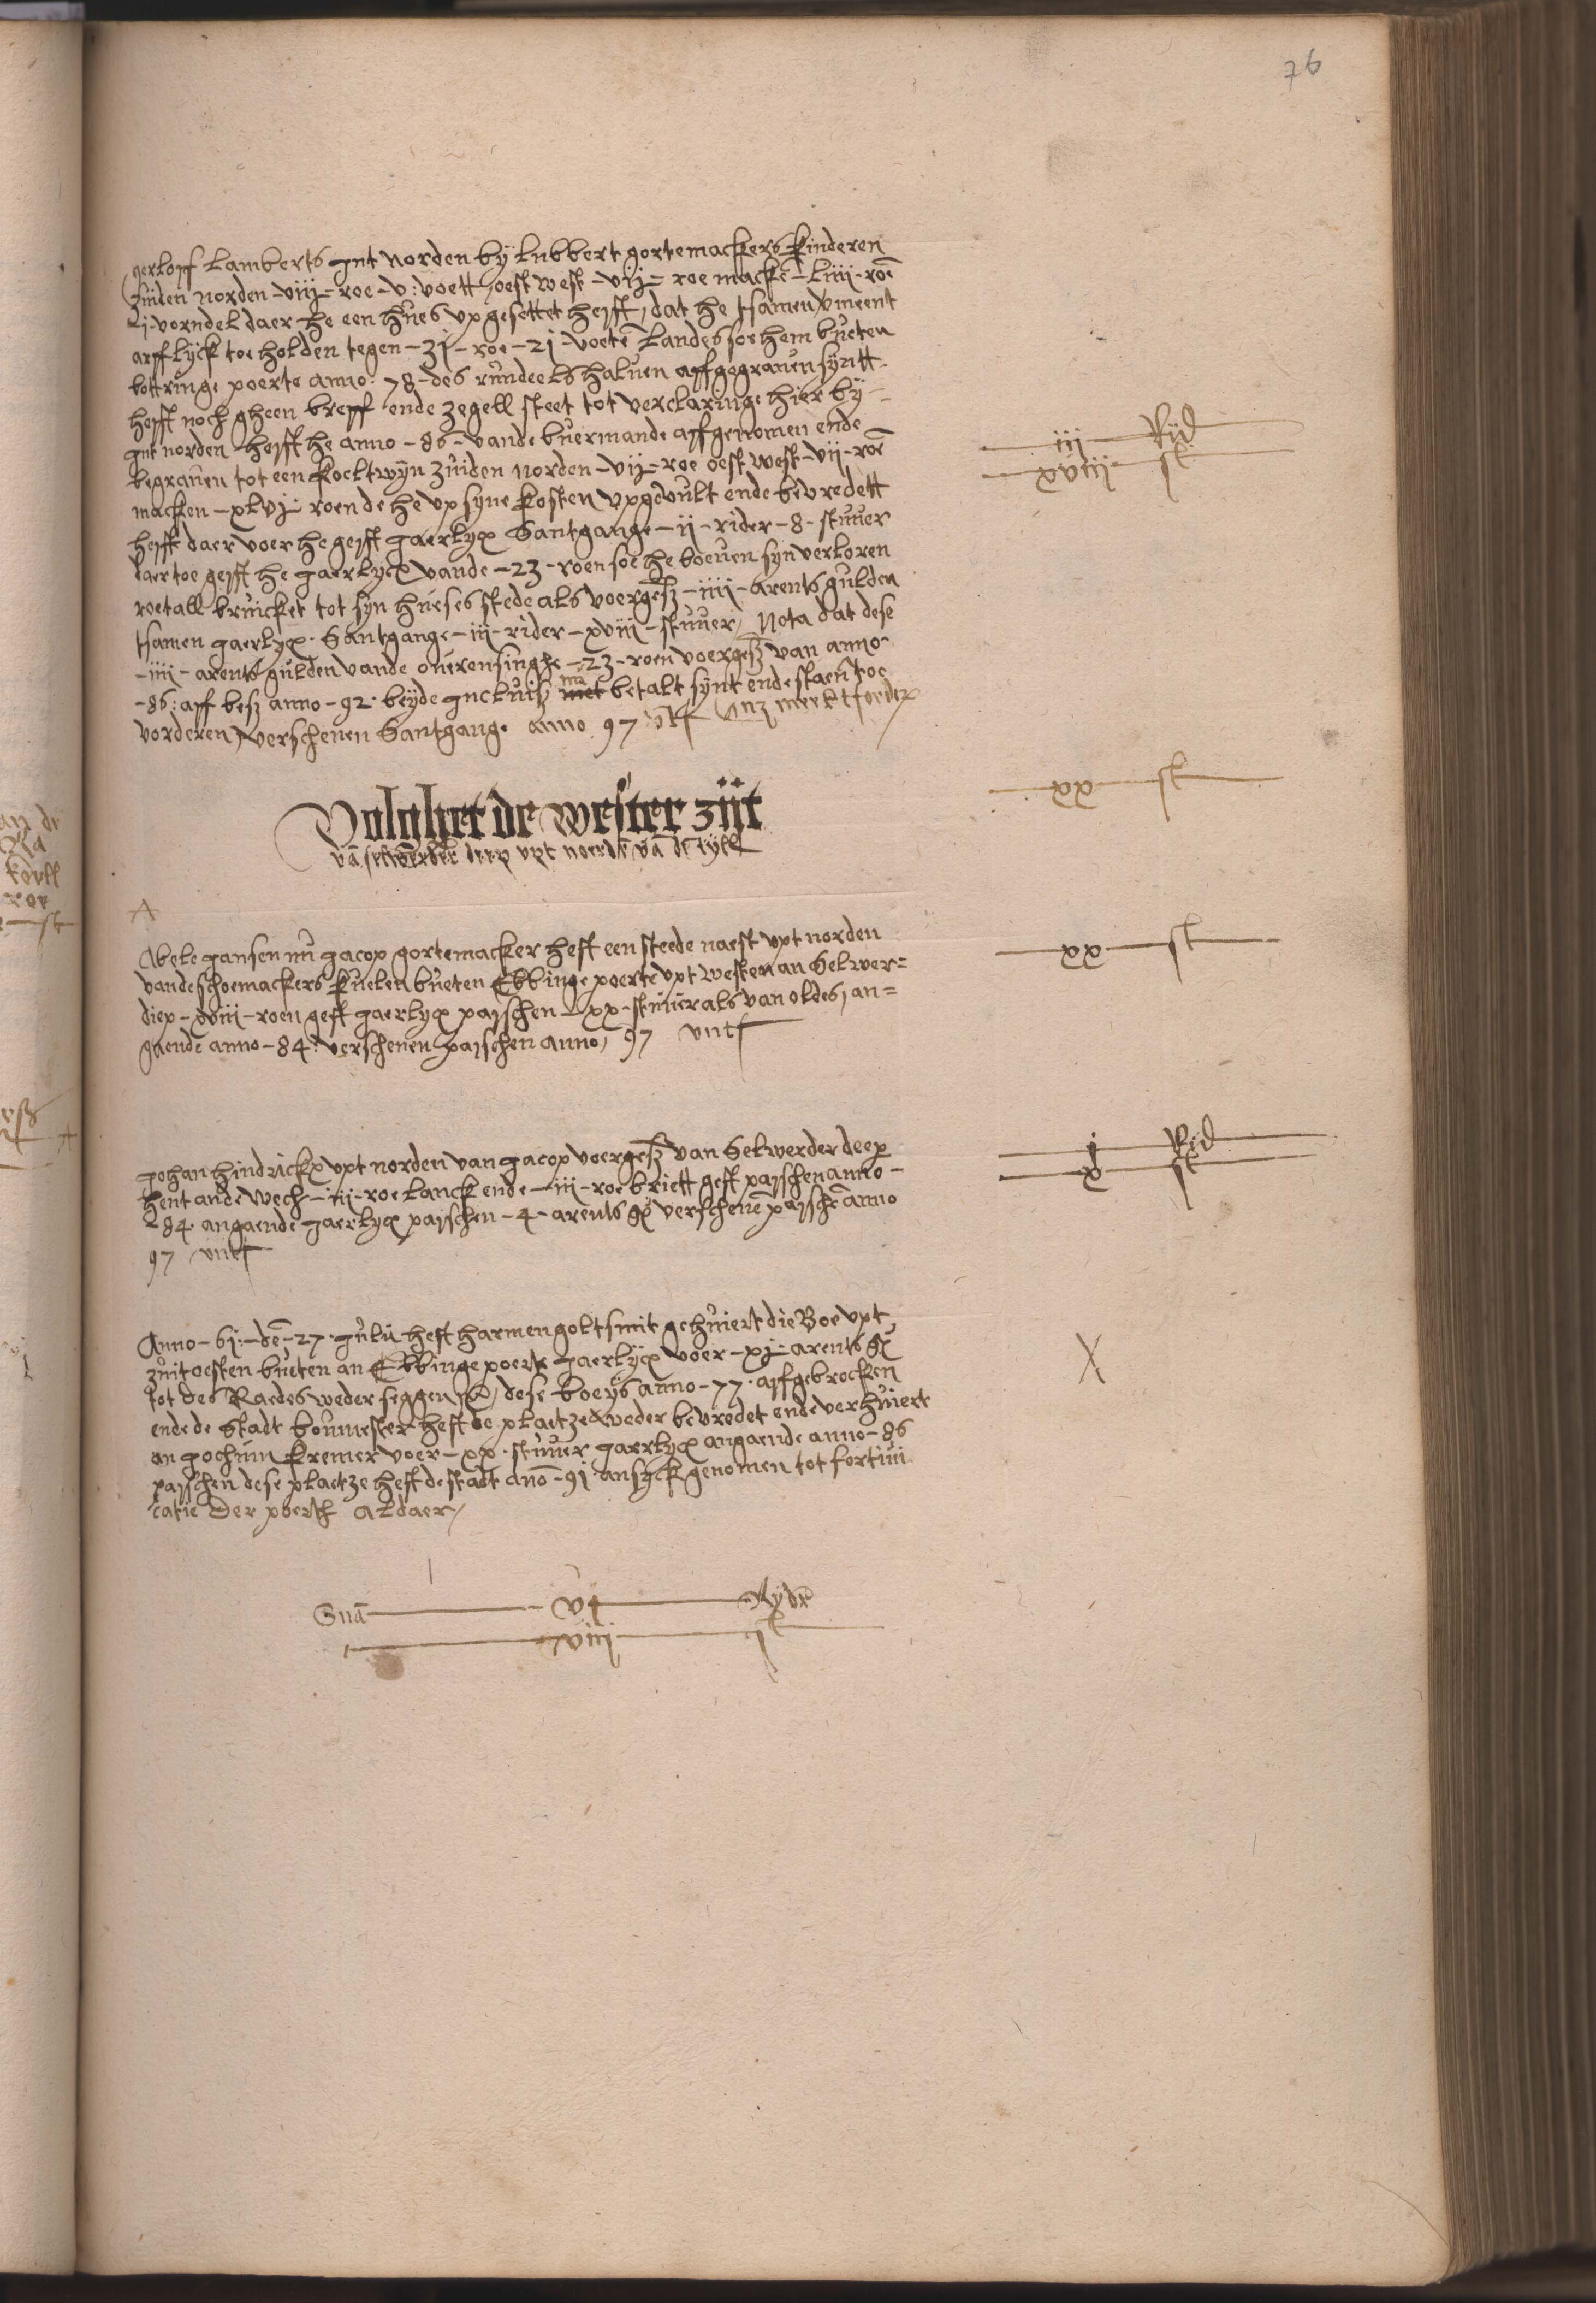 76
gerloff Lamberts int norden by Lubbert gortemackers kinderen
zuiden norden - viij - roe - v: voett, oest west - vij = roe macke - Liiij - roe
- j vorndel daer he een hues upgesettet hefft, dat he tsamen vmeent
arfflyck toe holden tegen - 3j - roe - 2j voete Landes soe hem bueten
bottringe poerte anno: 78 - des rundeels haluen affgegrauen syntt
hefft noch gheen breyff ende zegell steet tot verclaringe hier by =
int norden - hefft he anno - 86 - vande buermande affgenomen ende
begrauen tot een Koeltwyn zuiden norden - vij = roe oest west - vij - roe
macken - xlvj - roen de he up syne kosten upgevult ende bevredett
hefft daer voer he gefft jaerlyx Santgange - ij - rider - 8 - stuver
daer toe gefft he jaerlycx vande - 23 - roen soe he boeven syn verloren
roetall bruicket tot syn hueses stede als voergesz - iiij - arents gulden
tsamen jaerlyx. Santgange - iij - rider - xviij - stuver, Nota dat dese
- iiij - arents gulden vande overensinghe - 23 - roen voergesz van anno
- 86: aff besz anno - 92 - beyde incluisz met betalt synt ende staen toe
vorderen, verschenen Santgange anno 97 vtf
iii Rid
xviij st
xx st
Volghet de wester zijt
va selwerder deep upt noerde va de tyll
A
Abele jansen nu jacop gortemacker heft een steede naest upt norden
vande schoemackers kuelen bueten Ebbinge poerte upt westen an Selwer=
diep - xviij - roen geft jaerlyx paischen - xx - stuver als van oldes, an=
gaende anno - 84: verschenen paischen anno, 97 vntf
xx st
johan hindrickx upt norden van jacop voergesz van Selwerder deep
hent ande wech - iij - roe lanck ende - iii - roe briett geft paischen anno -
- 84 angaende jaerlyx paischen - 4 - arents gl verschene paische anno
97 vntf
j Rid
x st
Anno - 6j: - de - 27. july heft harmen goltsmit gehuiert die Boe upt
zuitoesten bueten an Ebbinge poerte jaerlyx voer - xj - arents gl
tot des Raedes weder seggen, dese boe ys anno - 77. affgebrocken
ende de Stadt boumester heft de plaetze weder bevredet ende verhuiert
an jochim kremer voer - xx. stuver jaerlyx angaende anno - 86
paischen dese plaetze heft de stadt ano - 9j an syck genomen tot fortivi
catie der poerte aldaer,
X
Sua vj Ryder
viij st